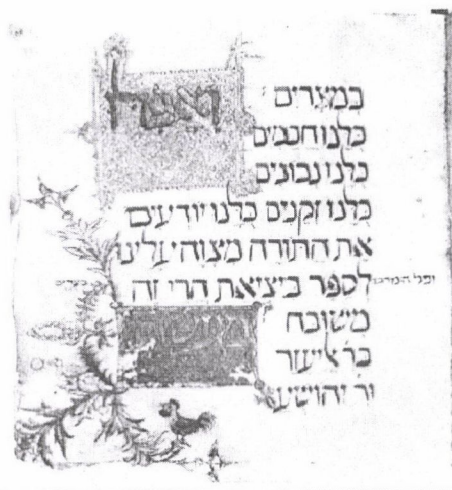 במצרים ואפי
כלנו חכמים
כלנו נבונים
כלנו זקנים כלנו יודעים
את התורה מצוה עלינו
לספר ביציאת הרי זה
וכל המרבה
משובח
בר אליעזר
ור יהושע